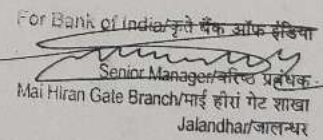 For Bank of India/कृते बैंक ऑफ इंडिया
Senior Manager/वरिष्ठ प्रबंधक
Mai Hiran Gate Branch/माई हीरां गेट शाखा
Jalandhar/जालन्धर